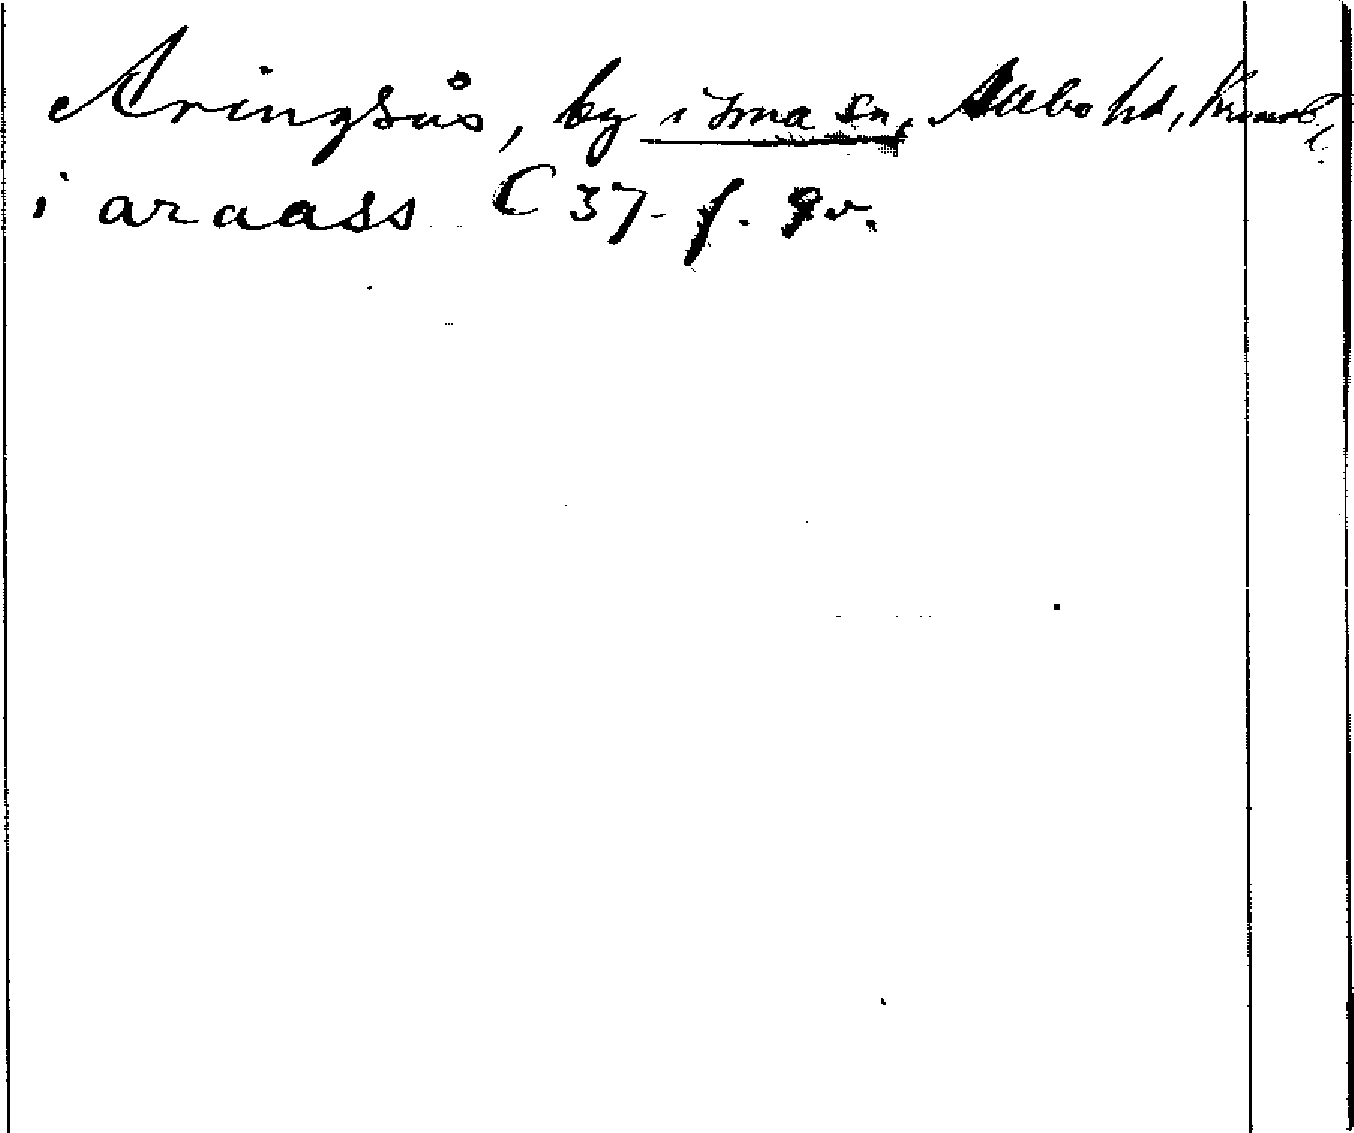 Aringsås, by i sma sn, Allbo hd, Kronob. l.
i araass C 37. f. 9v.